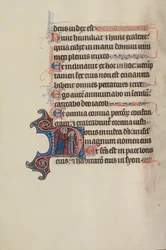 deus iudex est
hunc humiliat et hunc exaltat
quia calix in manu domini vini
meri plenus mixto
Et inclinavit ex hoc in hoc verum
tamen fex eius non est exinanita
bibent omnes peccatores terre
Ego autem annuntiabo in seculum
cantabo deo iacob
Et omnia cornua peccatorum confrin
gam et exaltabuntur cornua iusti
Notus in iudea deus in israel
magnum nomen eius
Et factus est in pace locus
eius et habitatio eius in syon